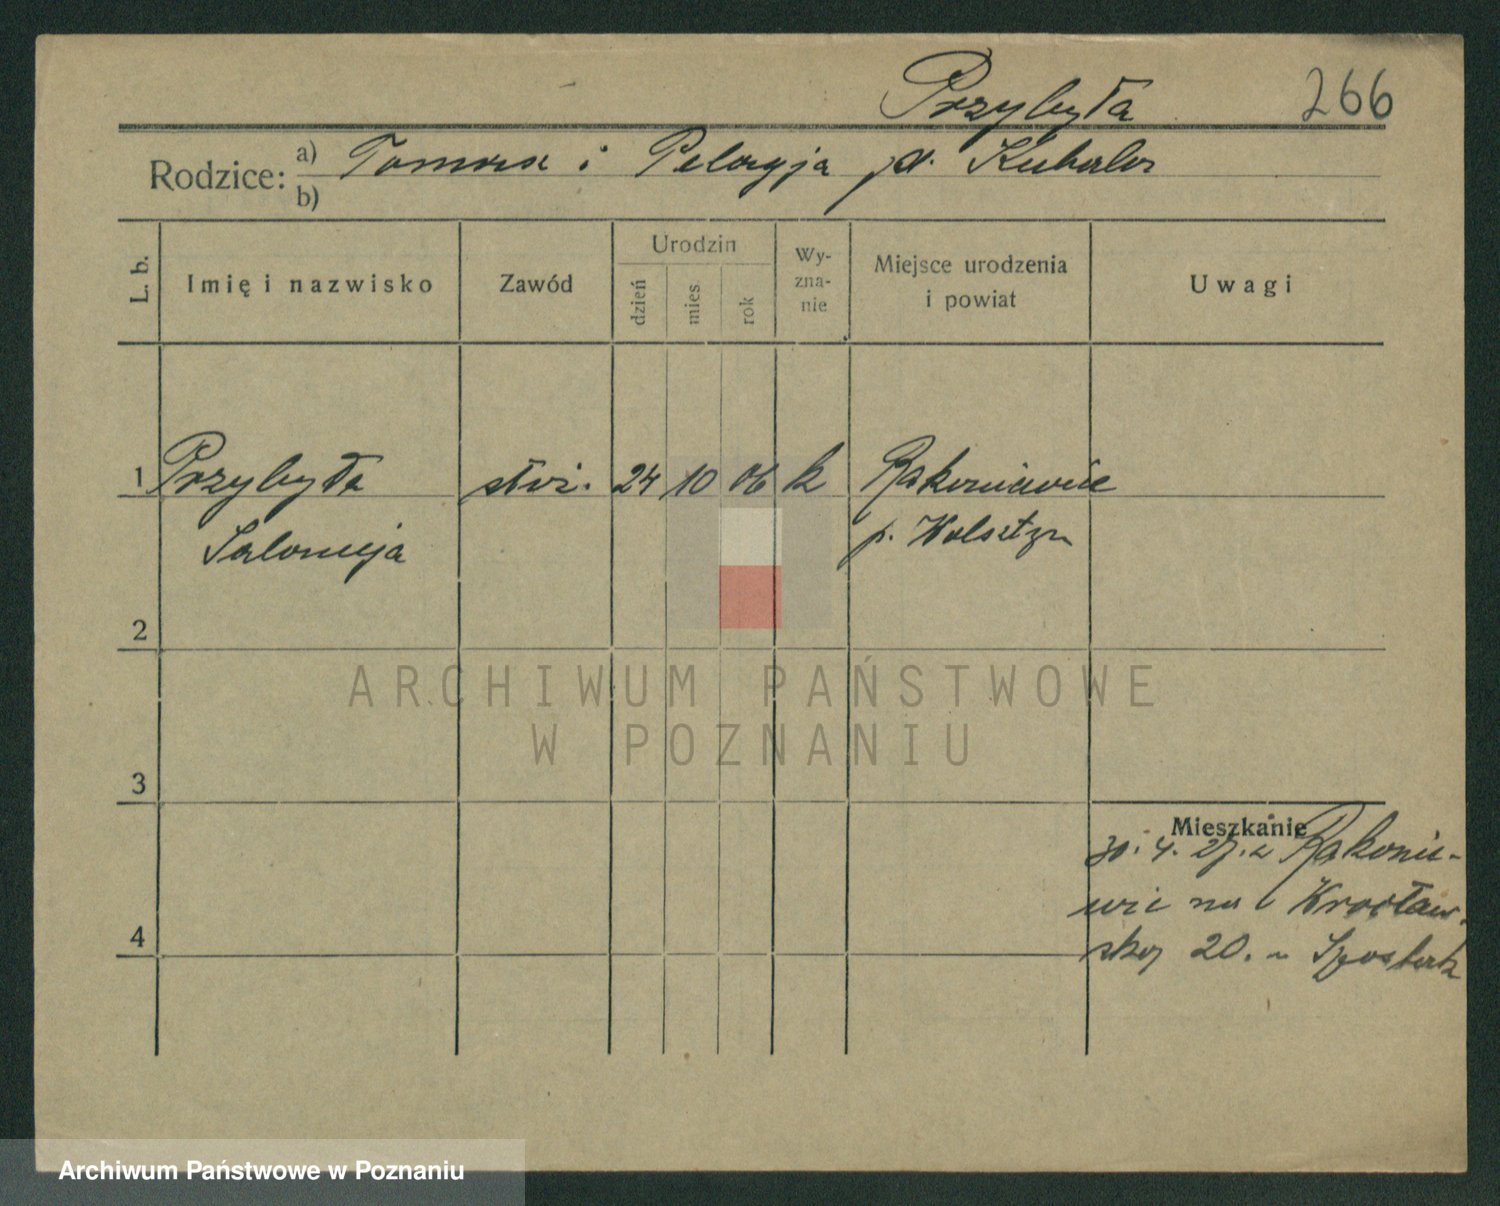 Przybyła 266
Rodzice: a) Tomasz i Pelagja z d. Kubala
b)
L. b. Imię i nazwisko Zawód Urodzin dzień mies. rok Wy-zna-nie Miejsce urodzenia i powiat Uwagi
1 Przybyła służ. 24 10 06 k Rakoniewice
Salomeja p. Wolsztyn
2
ARCHIWUM PAŃSTWOWE
W POZNANIU
3
Mieszkanie
30. 4. 27. z Rakonie-
wic na Wrocław-
skej 20. u
4
Archiwum Państwowe w Poznaniu